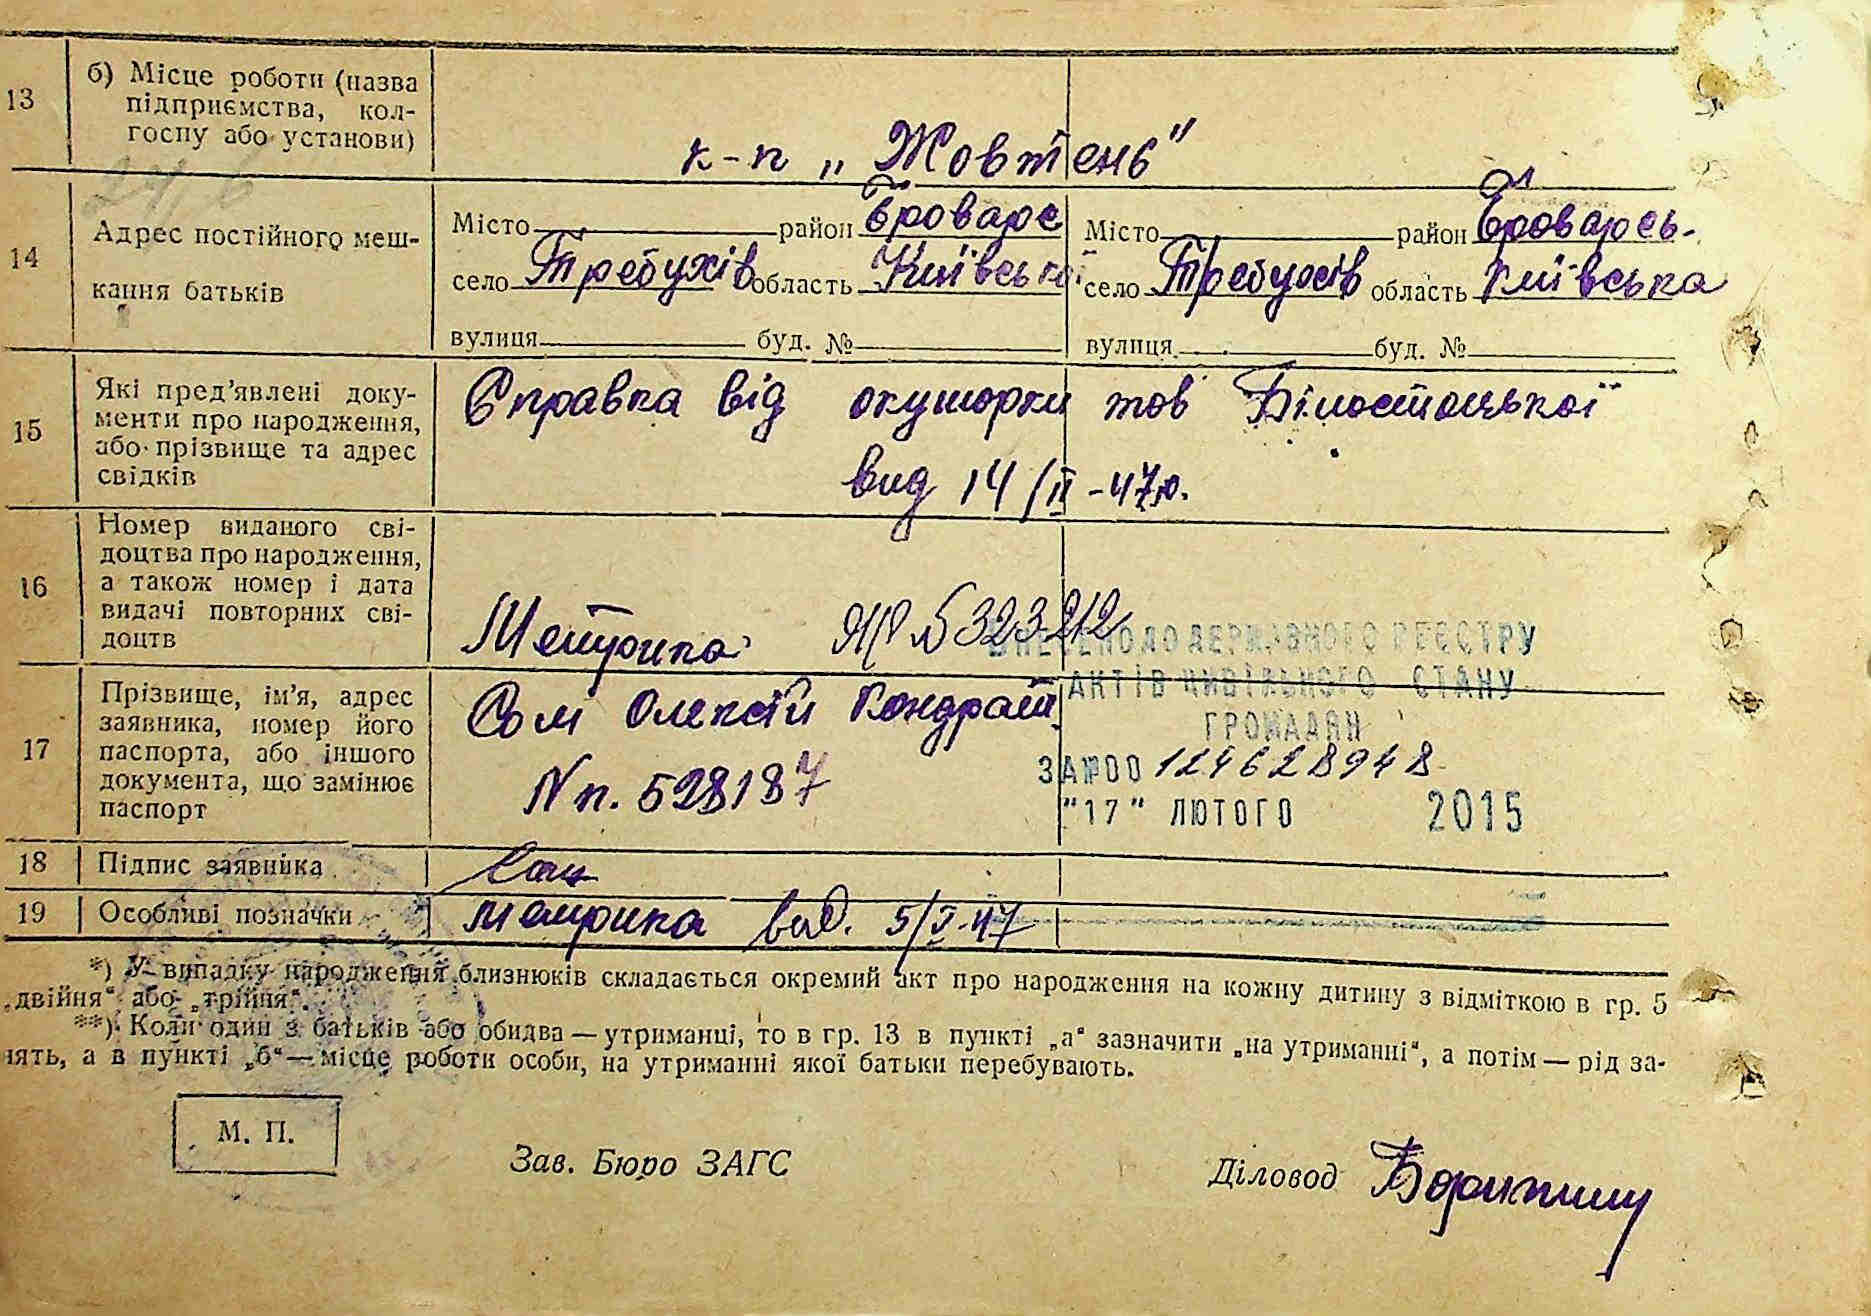 13
б) Місце роботи (назва
підприємства, кол-
госпу або установи)
к-п „Жовтень"
14
Адрес постійного меш-
кання батьків
Місто район Броварс
село Требухів область Київської
вулиця буд. №
Місто район Броварсь-
село Требухів область Київська
вулиця буд. №
15
Які пред'явлені доку-
менти про народження,
або прізвище та адрес
свідків
Справка від окушорки тов Білостоцької
вид 14/II-47р.
16
Номер виданого сві-
доцтва про народження,
а також номер і дата
видачі повторних сві-
доцтв
Метрика № 323212
ВНЕСЕНО ДО ДЕРЖАВНОГО РЕЄСТРУ
АКТІВ ЦИВІЛЬНОГО СТАНУ
ГРОМАДЯН
ЗА №00124628948
"17" ЛЮТОГО 2015
17
Прізвище, ім'я, адрес
заявника, номер його
паспорта, або іншого
документа, що замінює
паспорт
Сом Олексій Кондрат.
N п. 528187
18
Підпис заявника
Сом
19
Особливі позначки
Метрика вид. 5/V-47
*) У випадку народження близнюків складається окремий акт про народження на кожну дитину з відміткою в гр. 5
„двійня" або „трійня".
**) Коли один з батьків або обидва — утриманці, то в гр. 13 в пункті „а" зазначити „на утриманні", а потім — рід за-
нять, а в пункті „б" — місце роботи особи, на утриманні якої батьки перебувають.
М. П.
Зав. Бюро ЗАГС
Діловод